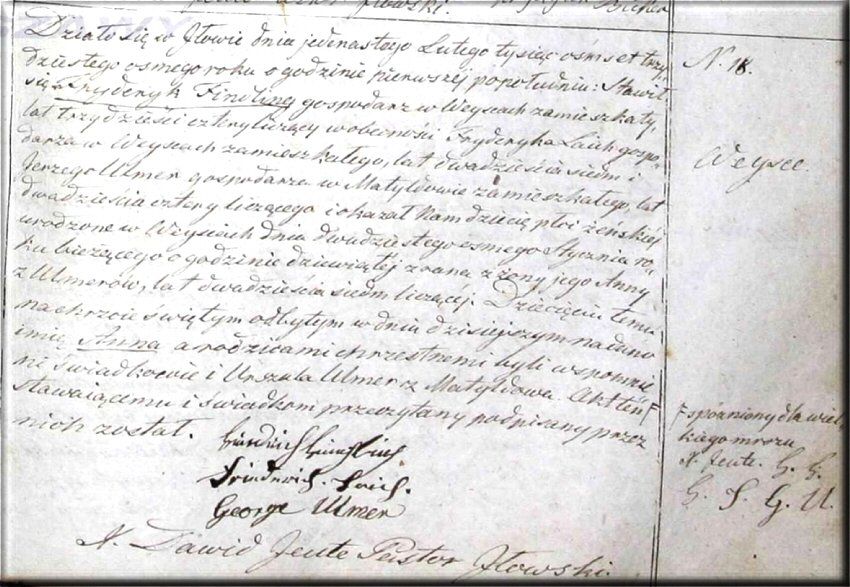 Działo się w Iłowie dnia jedenastego Lutego tysiąc ośmset trzy,
dziestego osmego roku o godzinie pierwszej popołudniu: Stawił
się Fryderyk Findling gospodarz w Weyscach zamieszkały,
lat trzydzieści cztery liczący w obecności Fryderyka Laich gospo,
darza w Weyscach zamieszkałego, lat dwadzieścia siedm i
Jerzego Ulmer gospodarza w Matyldowie zamieszkałego, lat
dwadzieścia cztery liczącego i okazał Nam dziecię płci żeńskiéj
urodzone w Weyscach dnia dwudziestego osmego Stycznia ro,
ku bieżącego o godzinie dziewiątéj zrana z żony jego Anny
z Ulmerów, lat dwadzieścia siedm liczącéj. Dziecięciu temu
na chrzcie świętym odbytym w dniu dzisiejszym nadano
imię Anna a rodzicami chrzestnemi byli wspomnie
ni świadkowie i Urszula Ulmer z Matyldowa. Akt ten F
stawaiącemu i świadkom przeczytany podpisany przez
nich został.
Friedrich
Friederich Laich.
George Ulmer
N. Dawid Jeute Pastor Iłowski.
N. 18.
Weysce.
F spóźniony dla wiel,
kiego mrozu
N. Jeute. G. G.
G. F. G. U.